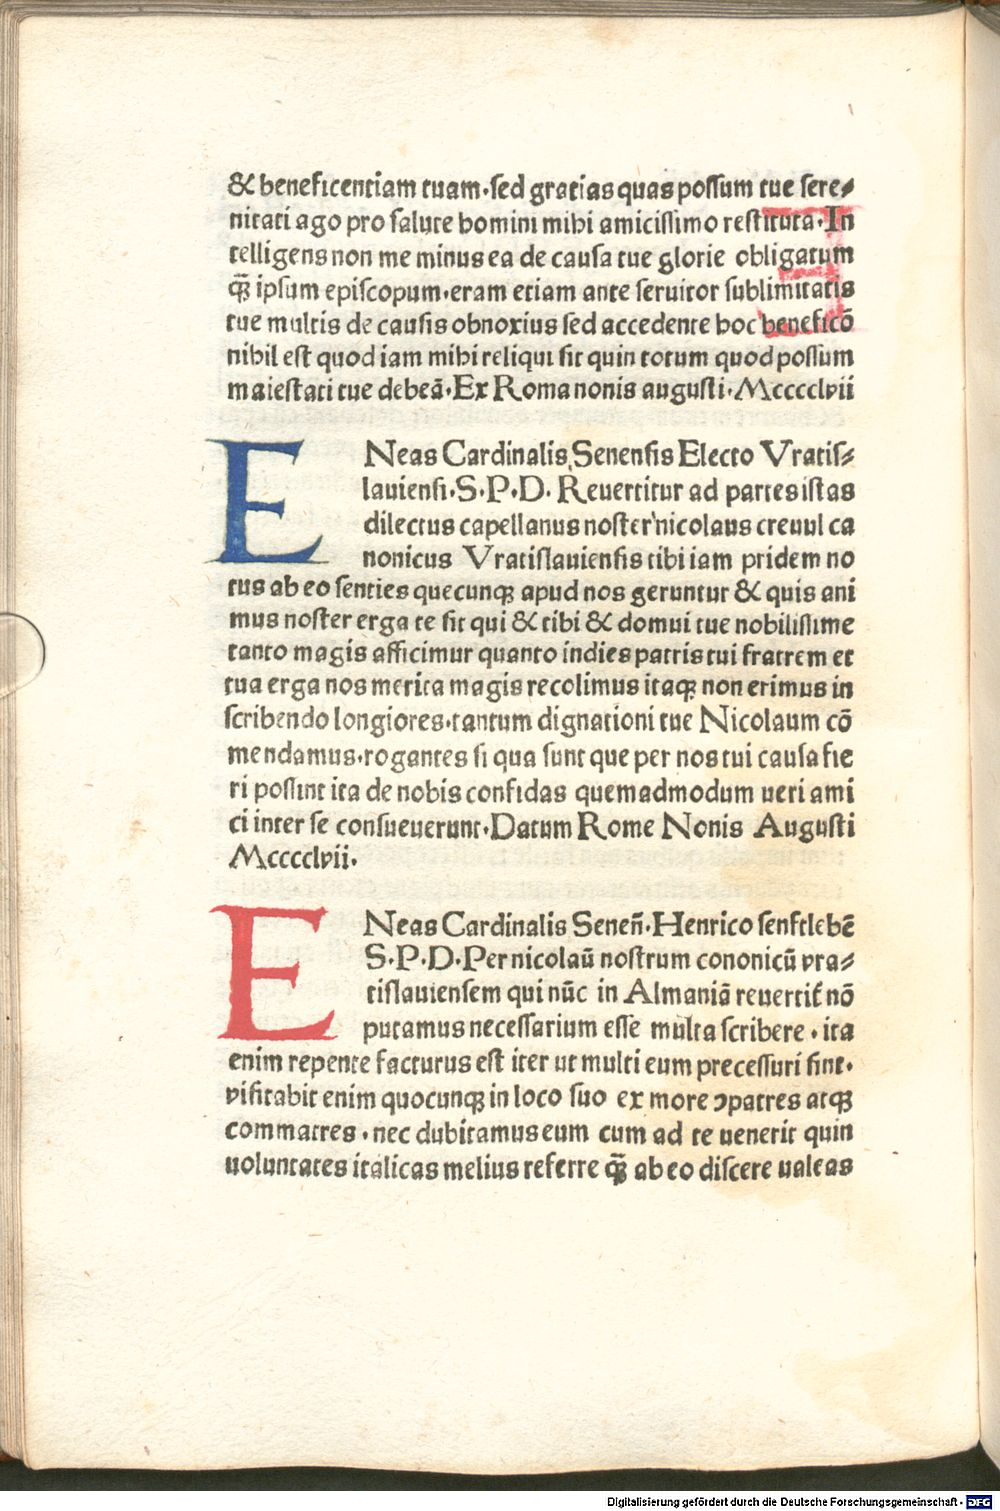 & beneficentiam tuam·sed gratias quas possum tue sere⸗
nitati ago pro salute homini mihi amicissimo restituta·In
telligens non me minus ea de causa tue glorie obligatum
qꝫ̄ ipsum episcopum·eram etiam ante seruitor sublimitatis
tue multis de causis obnoxius sed accedente hoc beneficō
nihil est quod iam mihi reliqui sit quin totum quod possum
maiestati tue debeā·Ex Roma nonis augusti·Mcccclvii
ENeas Cardinalis Senensis Electo Vratis⸗
lauiensi·S·P·D· Reuertitur ad partes istas
dilectus capellanus noster nicolaus creuul ca
nonicus Vratislauiensis tibi iam pridem no
tus ab eo senties quecunqꝫ apud nos geruntur & quis ani
mus noster erga te sit qui & tibi & domui tue nobilissime
tanto magis afficimur quanto indies patris tui fratrem et
tua erga nos merita magis recolimus itaqꝫ non erimus in
scribendo longiores·tantum dignationi tue Nicolaum cō
mendamus·rogantes si qua sunt que per nos tui causa fie
ri possint ita de nobis confidas quemadmodum ueri ami
ci inter se consueuerunt·Datum Rome Nonis Augusti
Mcccclvii·
ENeas Cardinalis Seneñ·Henrico senftlebē
S·P·D·Per nicolaū nostrum cononicū vra⸗
tislauiensem qui nūc in Almaniā reuertit᷑ nō
putamus necessarium esse multa scribere·ita
enim repente facturus est iter ut multi eum precessuri sint·
visitabit enim quocunqꝫ in loco suo ex more ↄpatres atqꝫ
commatres·nec dubitamus eum cum ad te uenerit quin
uoluntates italicas melius referre qꝫ̄ ab eo discere ualeas
Digitalisierung gefördert durch die Deutsche Forschungsgemeinschaft - DFG